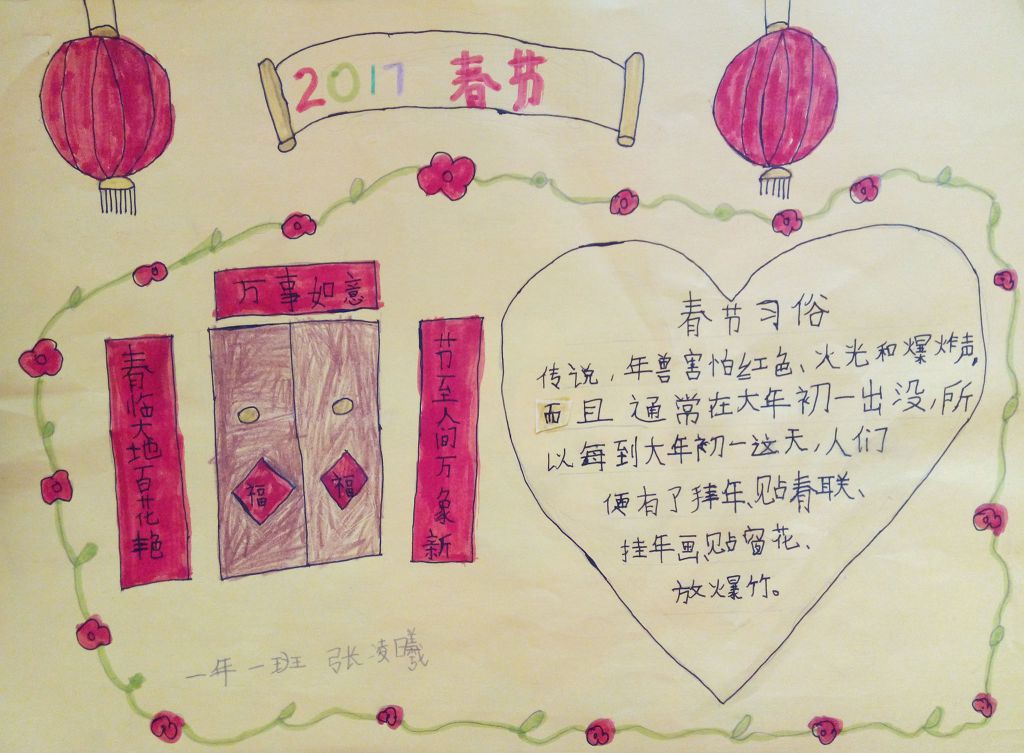 2017 春节
万事如意
春临大地百花艳
节至人间万象新
福
福
春节习俗
传说,年兽害怕红色、火光和爆炸声,
而且通常在大年初一出没,所
以每到大年初一这天,人们
便有了拜年、贴春联、
挂年画、贴窗花、
放爆竹。
一年一班 张凌曦